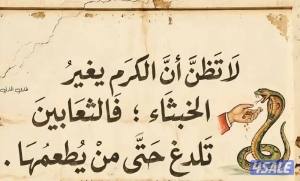 لَا تَظُنَّ أنَّ الكرَم يغيرُ
الخبثَاء ؛ فالثعَابينَ
تَلدغ حَتَّى منْ يُطعمُهَا .
4SALE